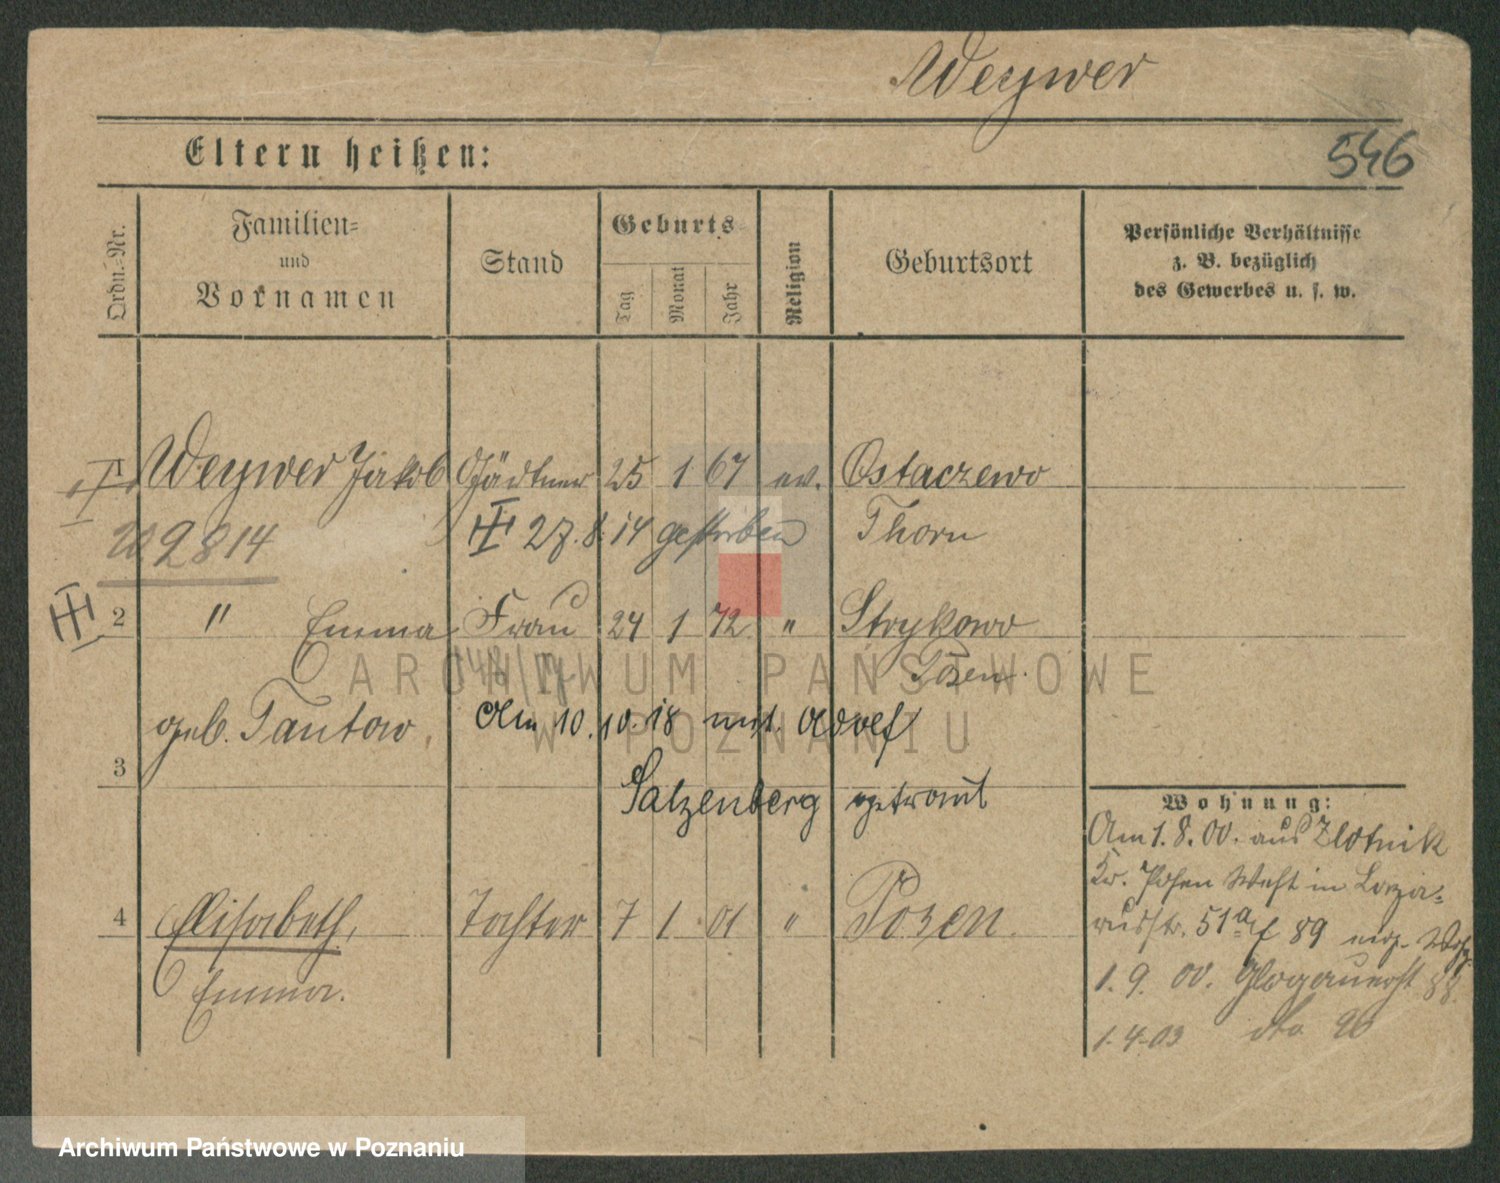 Weywer
546
Eltern heißen:
Ordn.-Nr.
Familien-
und
Vornamen
Stand
Geburts
Tag
Monat
Jahr
Religion
Geburtsort
Persönliche Verhältnisse
z. B. bezüglich
des Gewerbes u. s. w.
1 Weywer Jakob Gärtner 25 1 67 ev. Ostaczewo
Thorn
27.8.14 gestorben
209814
2 " Emma Frau 24 1 72 " Strykowo
Posen
geb. Tantow,
Am 10.10.18 mit Adolf
3
Salzenberg getraut
4 Elisabeth, Tochter 7 1 01 " Posen.
Emma.
Wohnung:
Am 1.8.00. aus Zlotnik
Kr. Posen West in Laza-
russtr. 51a f 89
1.9.00. Glogauerst 88
1.4.03 dto 96
ARCHIWUM PAŃSTWOWE
W POZNANIU
Archiwum Państwowe w Poznaniu